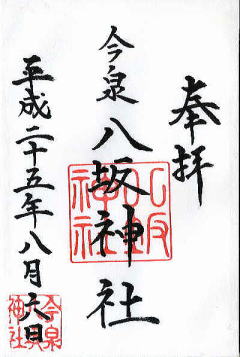 奉拝
今泉八坂神社
平成二十五年八月六日
八坂神社
今泉神社